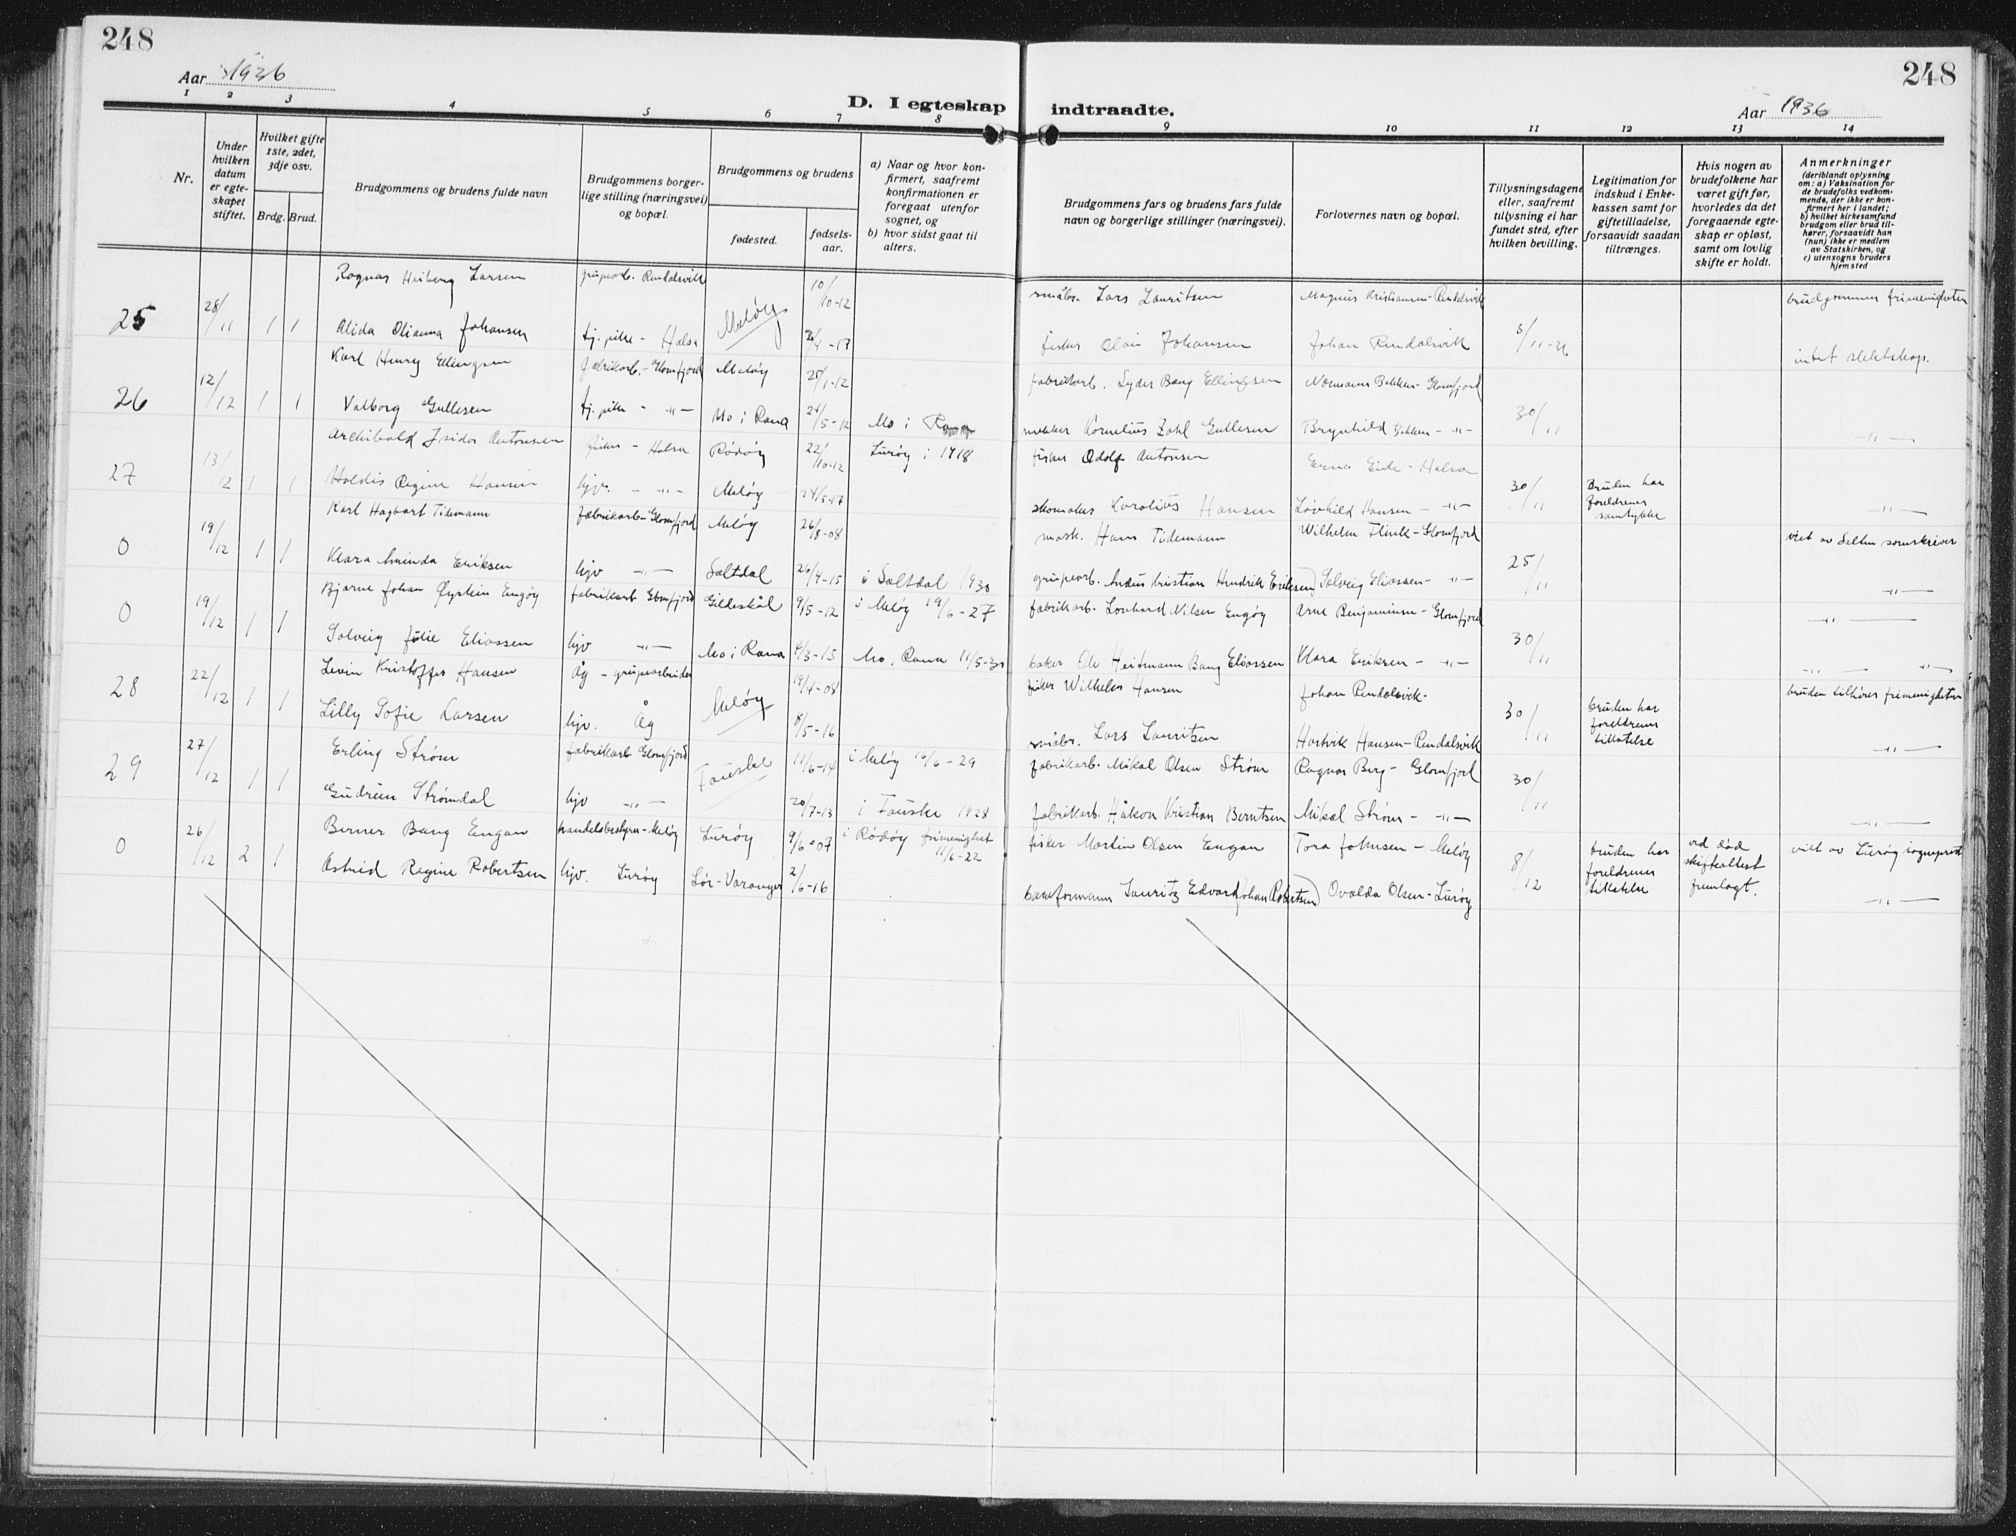 248
Aar 1936
D. I egteskap indtraadte.
Aar 1936
248
1 2 3 4 5 6 7 8 9 10 11 12 13 14
Nr.
Under hvilken datum er egte-skapet stiftet.
Hvilket gifte 1ste, 2det, 3dje osv.
Brdg. Brud.
Brudgommens og brudens fulde navn
Brudgommens borger-lige stilling (næringsvei) og bopæl.
Brudgommens og brudens
fødested.
fødsels-aar.
a) Naar og hvor kon-firmert, saafremt konfirmationen er foregaat utenfor sognet, og
b) hvor sidst gaat til alters.
Brudgommens fars og brudens fars fulde navn og borgerlige stillinger (næringsvei).
Forlovernes navn og bopæl.
Tillysningsdagene eller, saafremt tillysning ei har fundet sted, efter hvilken bevilling.
Legitimation for indskud i Enke-kassen samt for giftetilladelse, forsaavidt saadan tiltrænges.
Hvis nogen av brudefolkene har været gift før, hvorledes da det foregaaende egte-skap er opløst, samt om lovlig skifte er holdt.
Anmerkninger (deriblandt oplysning om: a) Vaksination for de brudefolks vedkom-mende, der ikke er kon-firmert her i landet; b) hvilket kirkesamfund brudgom eller brud til-hører, forsaavidt han (hun) ikke er medlem av Statskirken, og c) utensogns bruders hjemsted
25 28/11 1 1 Ragnar Heiberg Larsen grubearb. Rendalsvik Meløy 10/10-12 småbr. Lars Lauritsen Magnus Kristiansen-Rendalsvik brudgommen frimenigheten
Alida Olianna Johansen tj. pike - Halsa 4-17 fisker Olai Johansen Johan Rendalsvik intet slektskap.
26 12/12 1 1 Karl Henry Ellingsen fabrikarb.-Glomfjord Meløy 25/1-12 fabrikarb. Syder Bang Ellingsen Normann Bekken-Glomfjord 30/11
Valborg Gullesen tj. pike - " - Mo i Rana 24/5-12 Mo i Rana Kornelius Zahl Gullesen Brynhild Bekken - " - - " -
27 13/12 1 1 Archibald Isidor Antonsen fisker - Halsa Rödöy 22/10-12 Lurøy i 1918 fisker Adolf Antonsen Erna Eide - Halsa 30/11
Haldis Regine Hansen hjv. - " - Meløy 24/5-17 skomaker Karolius Hansen Løvhild Hansen - " - Bruden har foreldrenes samtykke - " -
0 19/12 1 1 Karl Hagbart Tidemann fabrikarb-Glomfjord Meløy 26/8-08 mask. Hans Tidemann Wilhelm Flink-Glomfjord 25/11 viet av Salten sorenskriver
Klara Aminda Eriksen hjv - " - Saltdal 26/4-15 i Saltdal 1930 grubearb. Andus Kristian Hendrik Eriksen Solveig Eliassen - " - - " -
0 19/12 1 1 Bjarne Johan Øystein Engøy fabrikarb Glomfjord Gilleskål 9/5-12 i Meløy 19/6-27 fabrikarb. Leonhard Nilsen Engøy Arne Benjaminsen-Glomfjord 30/11 - " -
Solveig Julie Eliassen hjv - " - Mo i Rana 4/3-15 Mo, Rana 11/5-30 baker Ole Heitmann Bang Eliassen Klara Eriksen - " - - " - - " -
28 22/12 1 1 Levin Kristoffer Hansen Åg - grubearbeider Meløy 19/4-08 fisker Wilhelm Hansen Johan Rendalsvik. 30/11 bruden tilhører frimenigheten
Lilly Sofie Larsen hjv. Åg 8/5-16 småbr. Lars Lauritsen Hartvik Hansen-Rendalsvik bruden har foreldrenes tillatelse - " -
29 27/12 1 1 Erling Strøm fabrikarb Glomfjord Fauske 11/6-14 i Meløy 16/6-29 fabrikarb. Mikal Olsen Strøm Ragnar Berg - Glomfjord 30/11
Gudrun Strømdal hjv - " - 20/7-13 i Fauske 1928 fabrikarb. Håkon Kristian Berntsen Mikal Strøm - " - - " -
0 26/12 2 1 Berner Bang Engan handelsbestyrer-Meløy Lurøy 9/6-07 i Rödöy frimenighet 11/6-22 fisker Martin Olsen Engan Tora Johnsen - Meløy 8/12 bruden har foreldrenes tillatelse ved död skifteattest fremlagt. viet av Lurøy sogneprest
Astrid Regine Robertsen hjv. Lurøy Sør-Varanger 2/6-16 baseformann Lauritz Edvard Johan Robertsen Ovalda Olsen-Lurøy - " -